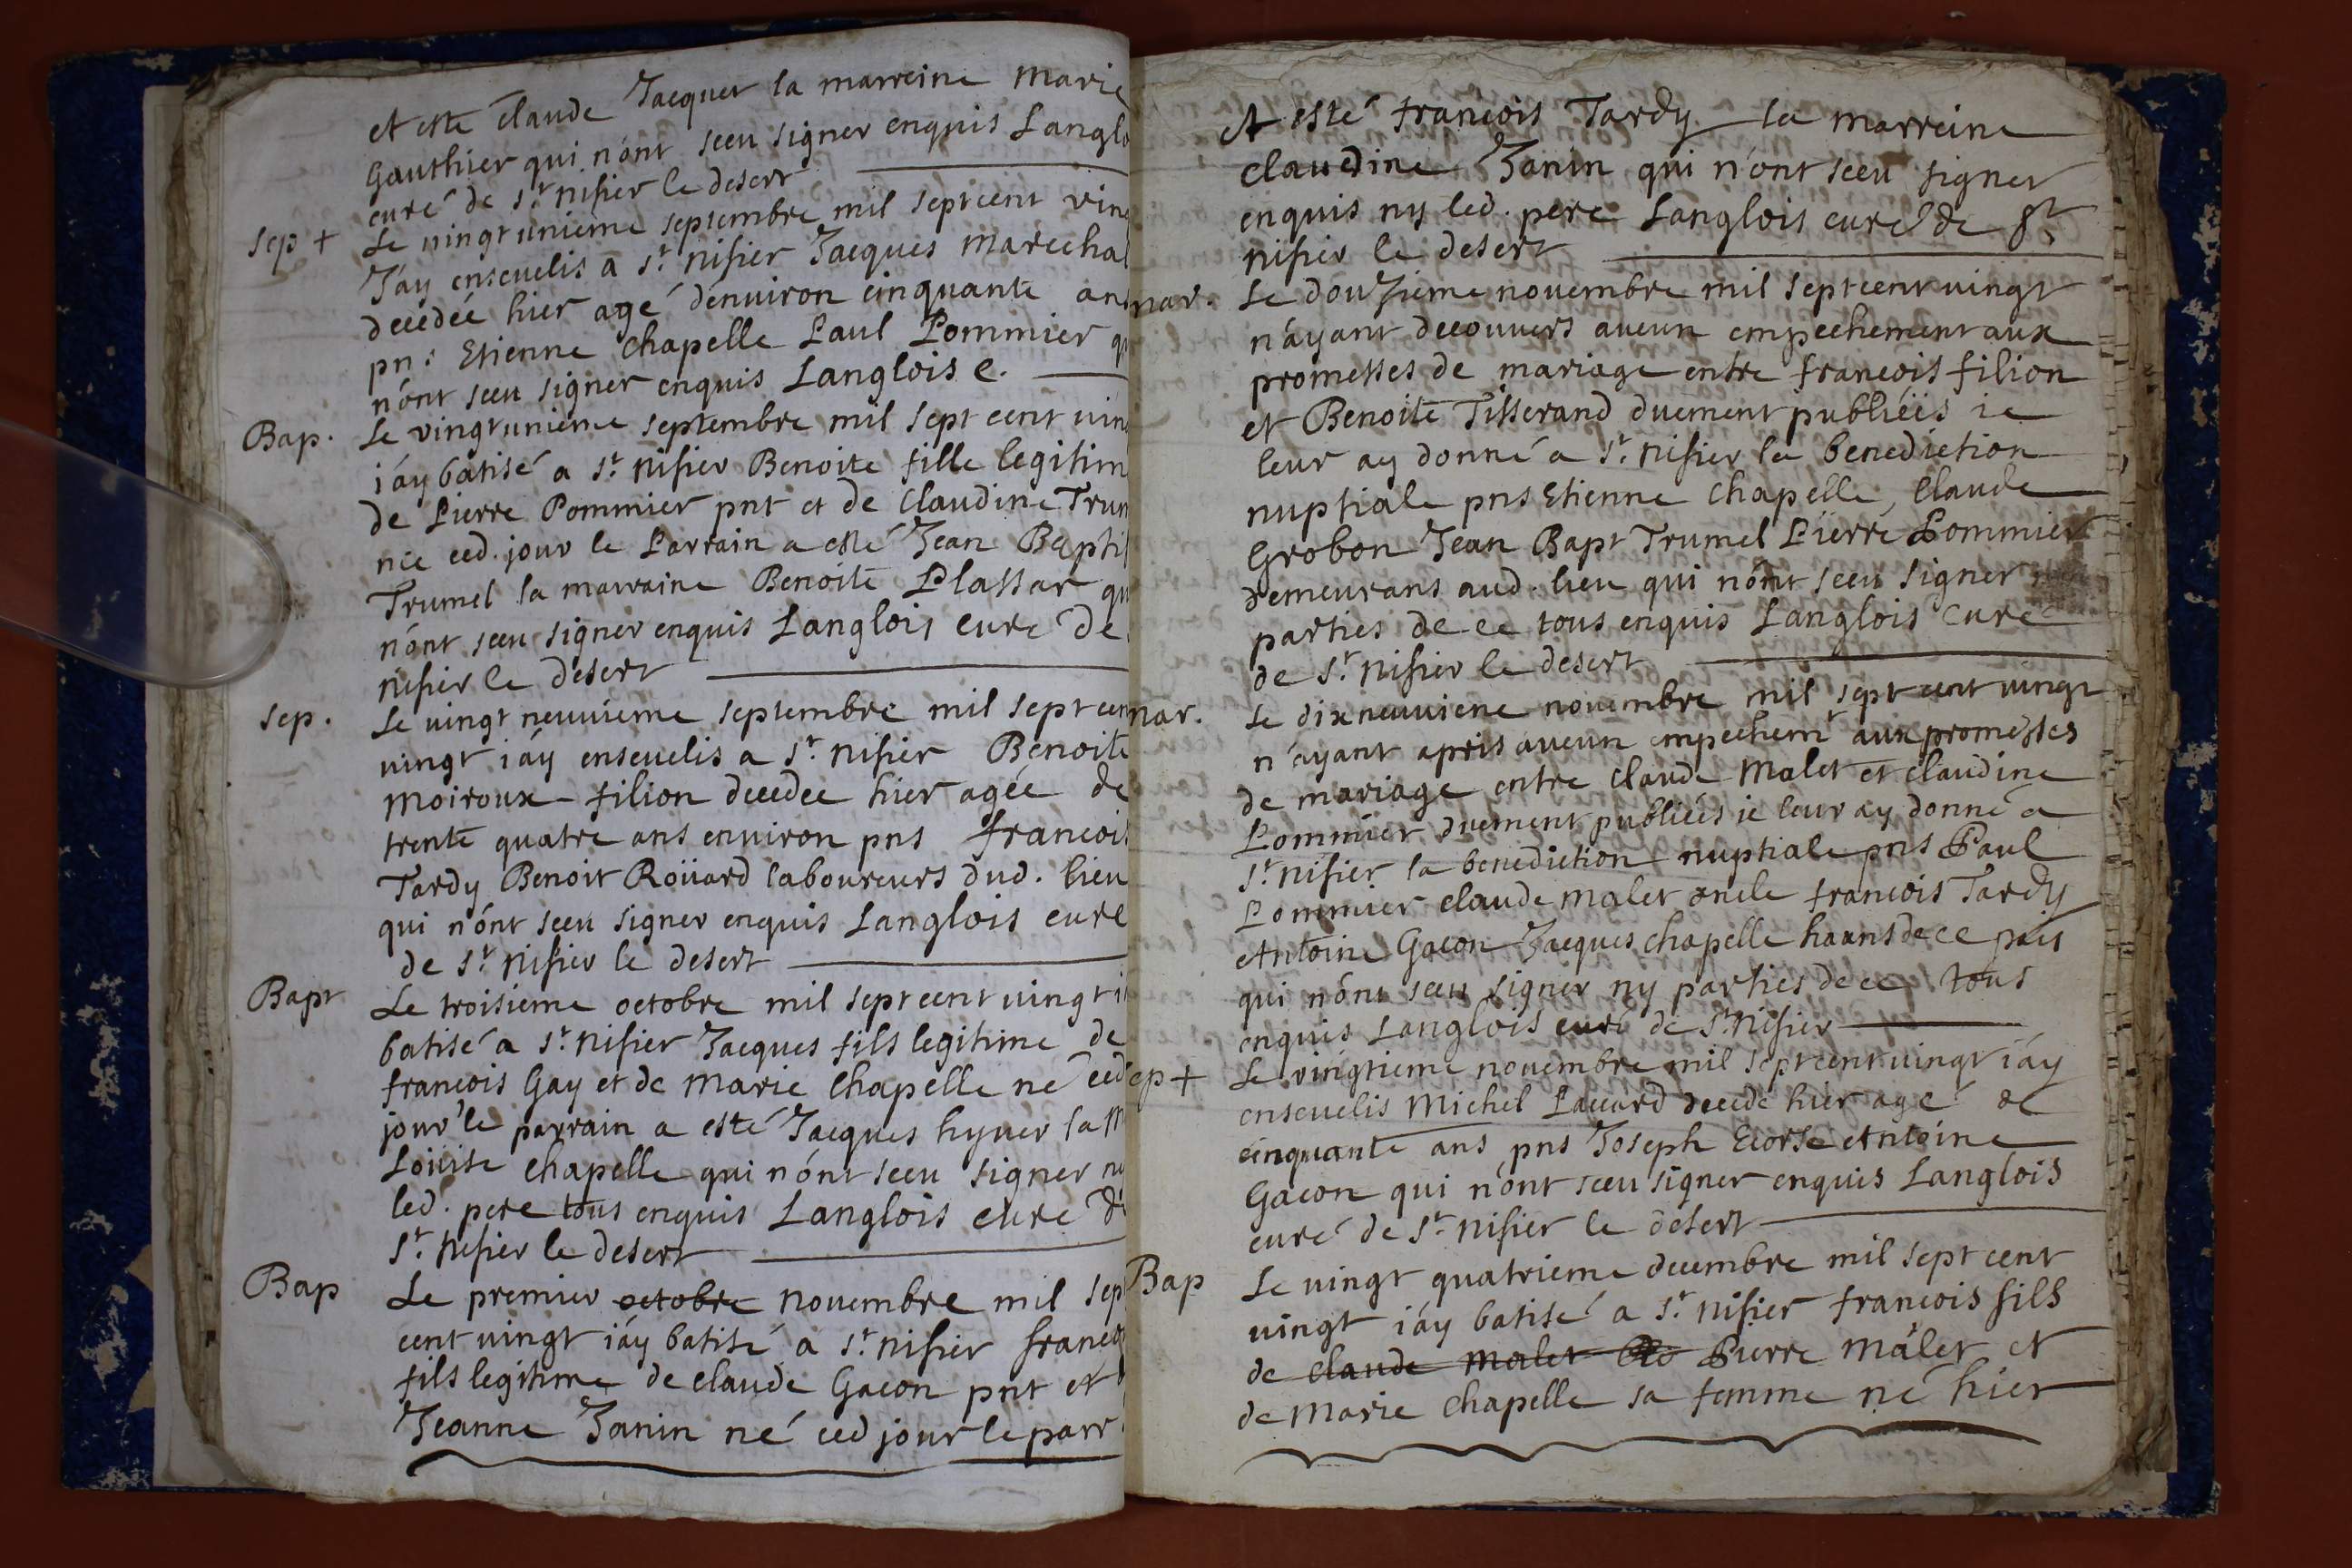 et este Claude Jacquet la marreine Marie
Gauthier qui n'ont sceu signer enquis Langlo
curé de St. nisier le desert
sep + Le vingtunieme septembre mil septcent vin
J'ay enseuelis a St. nisier Jacques marechal
decedée hier agé d'enuiron cinquante an
pns Etienne Chapelle Paul Pommier q
n'ont sceu signer enquis Langlois c.
Bap. Le vingtunieme septembre mil sept cent vin
i'ay batisé a St. nisier Benoite fille legitim
de Pierre Pommier pnt et de Claudine Trum
née ced. jour le Parrain a esté Jean Baptis
Trumel la marraine Benoite Plassar qu
n'ont sceu signer enquis Langlois Curé de
nisier le desert
sep. Le vingt neuvieme septembre mil sept cen
vingt i'ay enseuelis a St. nisier Benoite
Moiroux filion decedee hier agée de
trente quatre ans environ pns francois
Tardy Benoit Roüard laboureurs dud. lieu
qui n'ont sceu signer enquis Langlois curé
de St. nisier le desert
Bapt Le troisieme octobre mil septcent vingt i
batisé a St. nisier Jacques fils legitime de
francois Gay et de Marie Chapelle né ced
jour le parrain a esté Jacques hyuer la m
Loüise Chapelle qui n'ont sceu signer ny
led. pere tous enquis Langlois curé de
St. nisier le desert
Bap Le premier octobre novembre mil sep
cent vingt i'ay batisé a St. nisier franco
fils legitime de Claude Gacon pnt et
Jeanne Janin né ced jour le parr
A esté francois Tardy la marreine
Claudine Janin qui n'ont sceu signer
enquis ny led. pere Langlois curé de St
nisier le desert
mar. Le douzieme nouembre mil septcent vingt
n'ayant decouvers aucun empechement aux
promesses de mariage entre francois filion
et Benoite Tisserand duement publiées ie
leur ay donné a St. nisier la benediction
nuptiale pns Etienne Chapelle, Claude
Grobon Jean Bapt Trumel Pierre Pommier
demeurans aud. lieu qui n'ont sceu signer
parties de ce tous enquis Langlois Curé
de St. nisier le desert
mar. Le dixneuuieme nouembre mil sept cent vingt
n'ayant apris aucun empechemt aux promesses
de mariage entre Claude Malet et Claudine
Pommier duement publiées ie leur ay donné a
St. nisier la benediction nuptiale pns Paul
Pommier claude malet oncle francois Tardy
Antoine Gacon Jacques chapelle haans de ce païs
qui n'ont sceu signer ny parties de ce tous
enquis Langlois curé de St nisier
ep + Le vingtieme nouembre mil septcent vingt i'ay
enseuelis Michel Lauard decede hier agé de
cinquante ans pns Joseph Ecorse Antoine
Gacon qui n'ont sceu signer enquis Langlois
curé de St. nisier le desert
Bap Le vingt quatrieme decembre mil sept cent
vingt i'ay batisé a St. nisier francois fils
de claude malet Pierre Malet et
de Marie Chapelle sa femme né hier